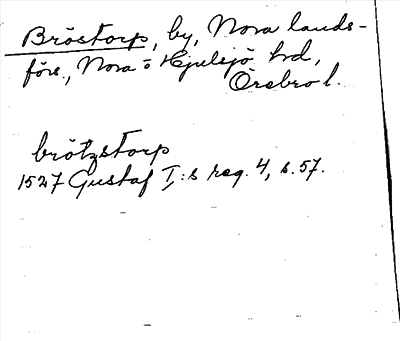 Bröstorp, by, Nora lands-
förs., Nora o Hjulsjö hd,
Örebro l.
brötzstorp
1527 Gustaf I:s reg. 4, s. 57.